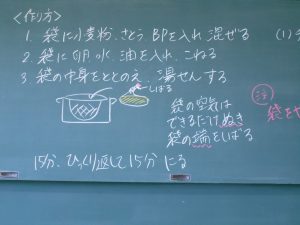 ＜作り方＞
1. 袋に小麦粉、さとう、BPを入れ 混ぜる
2. 袋に卵、水、油を入れ、こねる
3. 袋の中身をととのえ、湯せんする
しばる
袋の空気は
できるだけぬき
袋の端をしばる
15分、ひっくり返して15分 にる
(1)
注
袋を